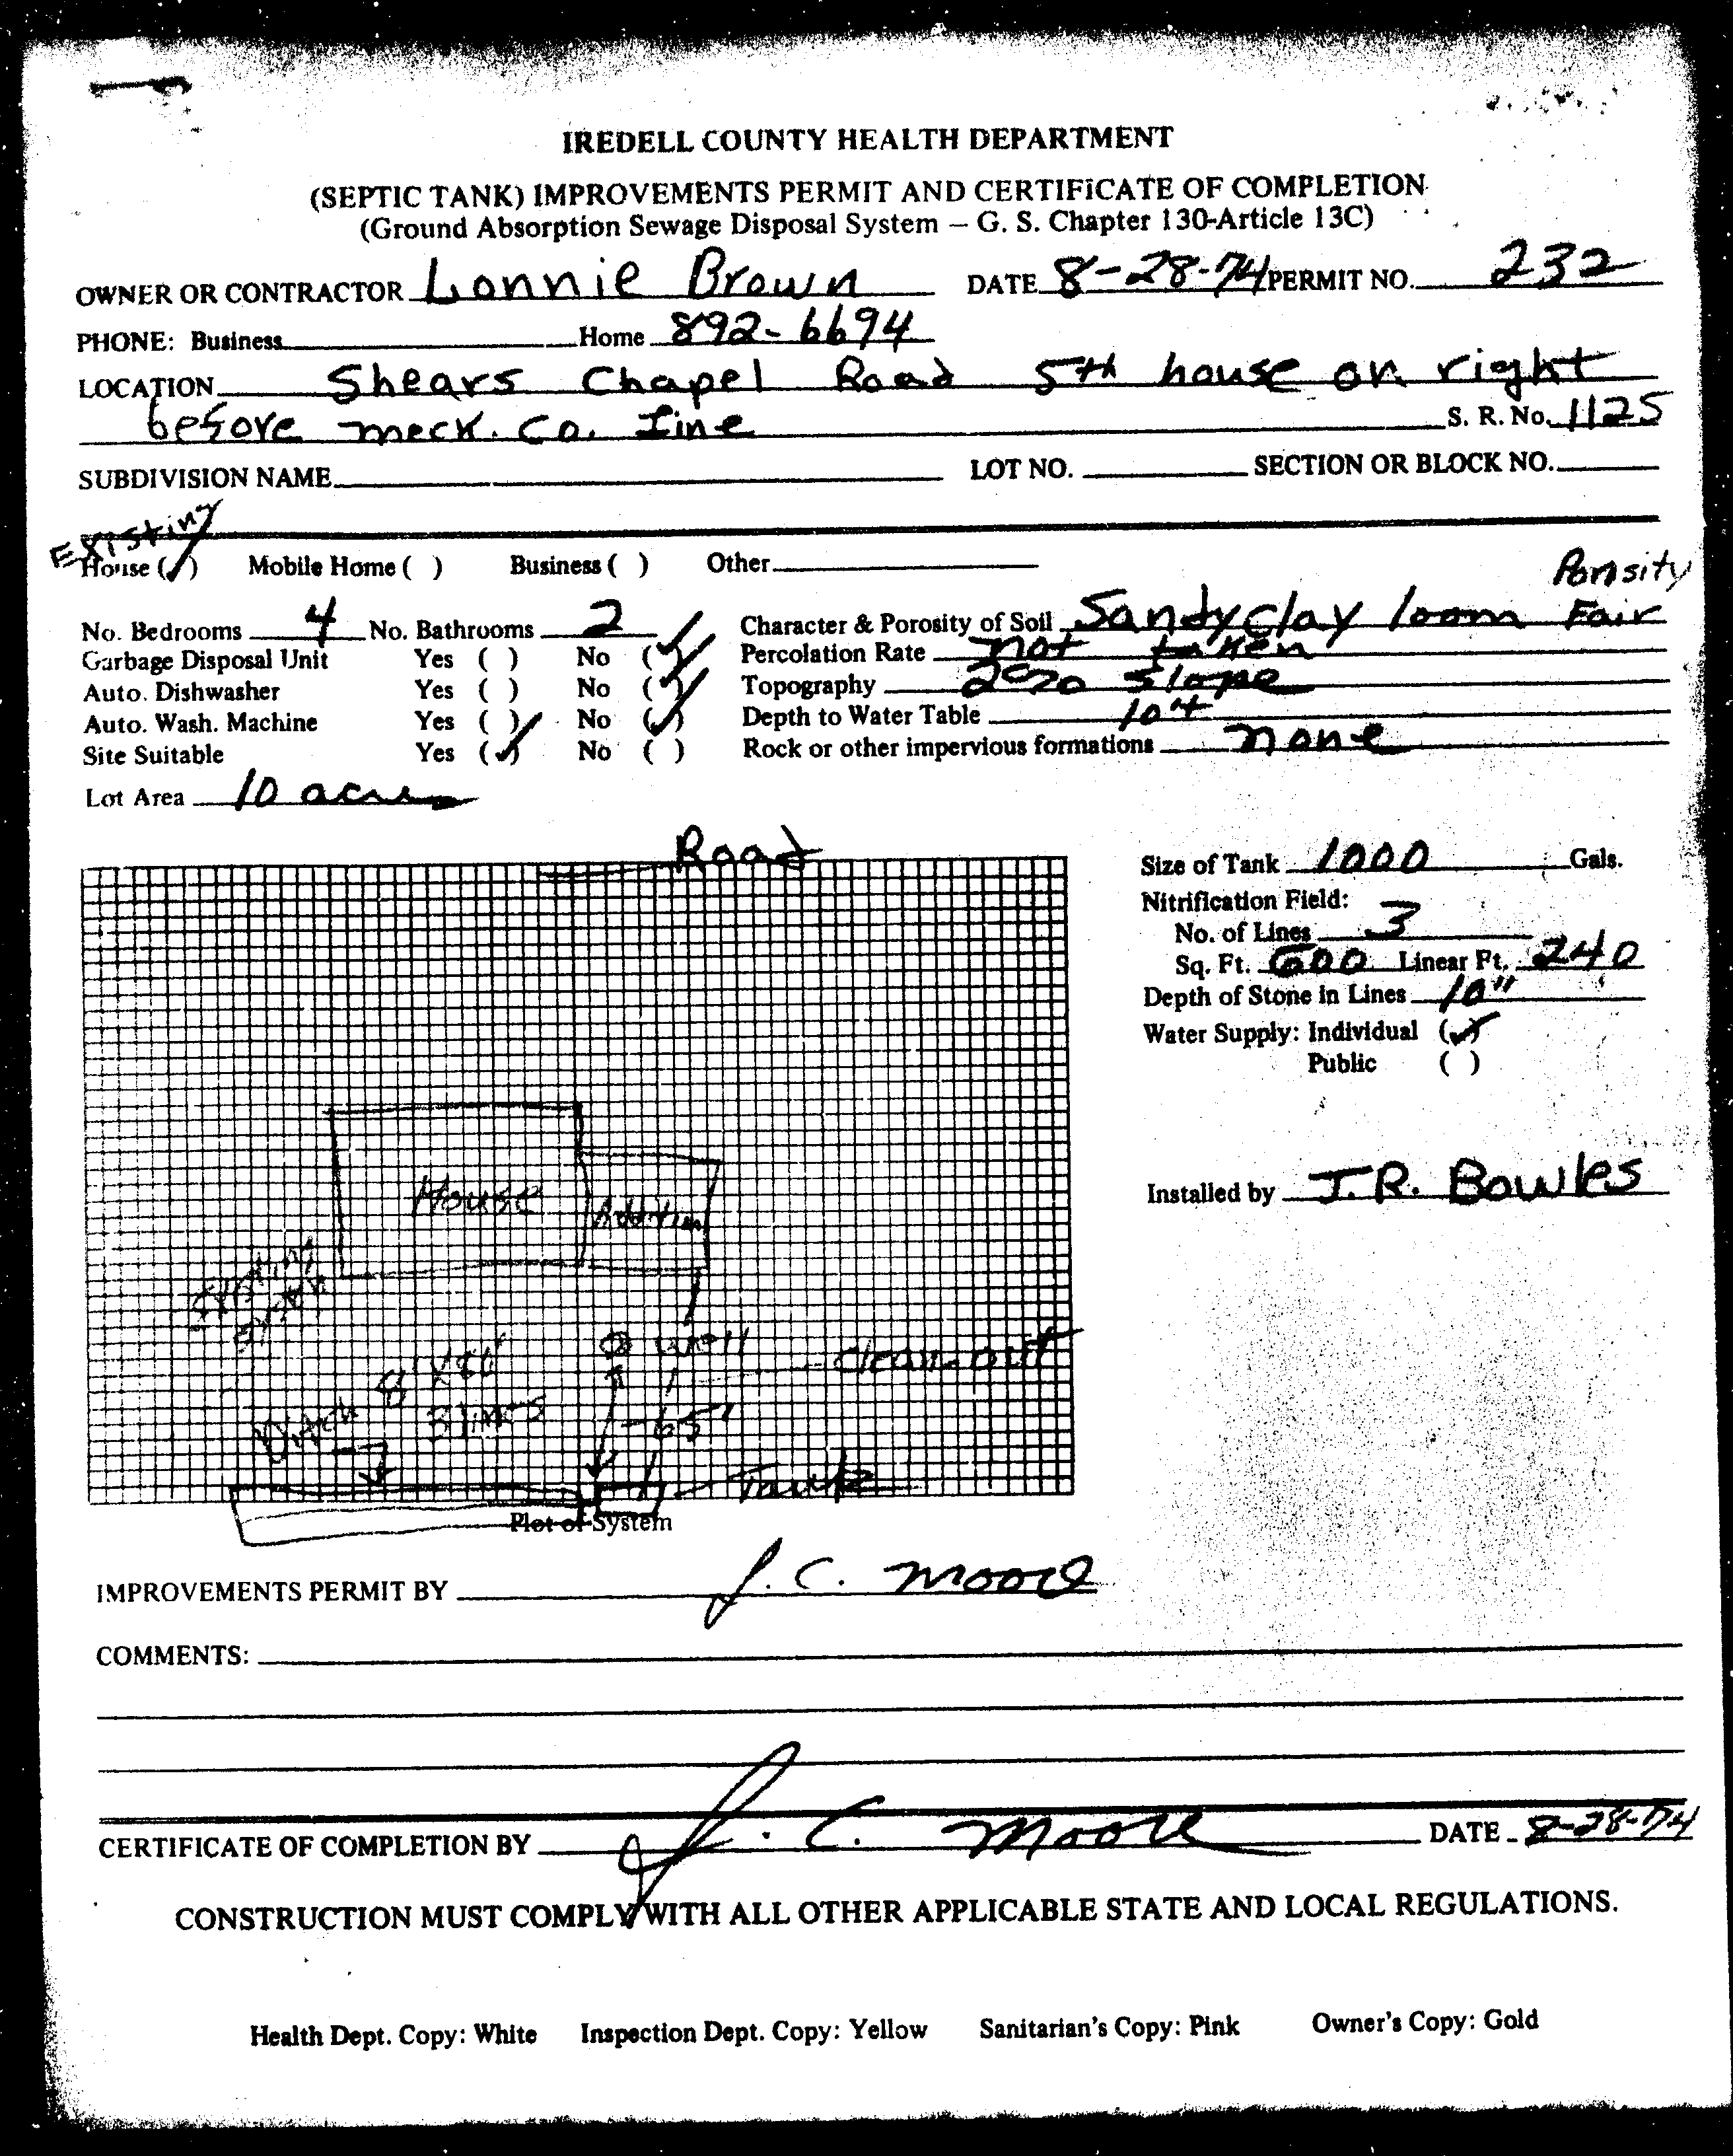 IREDELL COUNTY HEALTH DEPARTMENT
(SEPTIC TANK) IMPROVEMENTS PERMIT AND CERTIFICATE OF COMPLETION
(Ground Absorption Sewage Disposal System – G. S. Chapter 130-Article 13C)
OWNER OR CONTRACTOR Lonnie Brown DATE 8-28-74 PERMIT NO. 232
PHONE: Business Home 892-6694
LOCATION Shears Chapel Road 5th house on right
before meck. Co. Line S. R. No. 1125
SUBDIVISION NAME LOT NO. SECTION OR BLOCK NO.
Existing
House (✓) Mobile Home ( ) Business ( ) Other
Porosity
No. Bedrooms 4 No. Bathrooms 2 Character & Porosity of Soil Sandy clay loam Fair
Garbage Disposal Unit Yes ( ) No (✓) Percolation Rate not taken
Auto. Dishwasher Yes ( ) No (✓) Topography 2% Slope
Auto. Wash. Machine Yes ( ) No (✓) Depth to Water Table 10+
Site Suitable Yes (✓) No ( ) Rock or other impervious formations none
Lot Area 10 acres
Road
Size of Tank 1000 Gals.
Nitrification Field:
No. of Lines 3
Sq. Ft. 600 Linear Ft. 240
Depth of Stone in Lines 10"
Water Supply: Individual (✓)
Public ( )
House
Addition
Installed by J.R. Bowles
Existing
System
well
Clean-out
Ditch 8' X80'
3 lines
65'
Tank
Plot of System
IMPROVEMENTS PERMIT BY J. C. Moore
COMMENTS:
CERTIFICATE OF COMPLETION BY J. C. Moore DATE 8-28-74
CONSTRUCTION MUST COMPLY WITH ALL OTHER APPLICABLE STATE AND LOCAL REGULATIONS.
Health Dept. Copy: White Inspection Dept. Copy: Yellow Sanitarian's Copy: Pink Owner's Copy: Gold